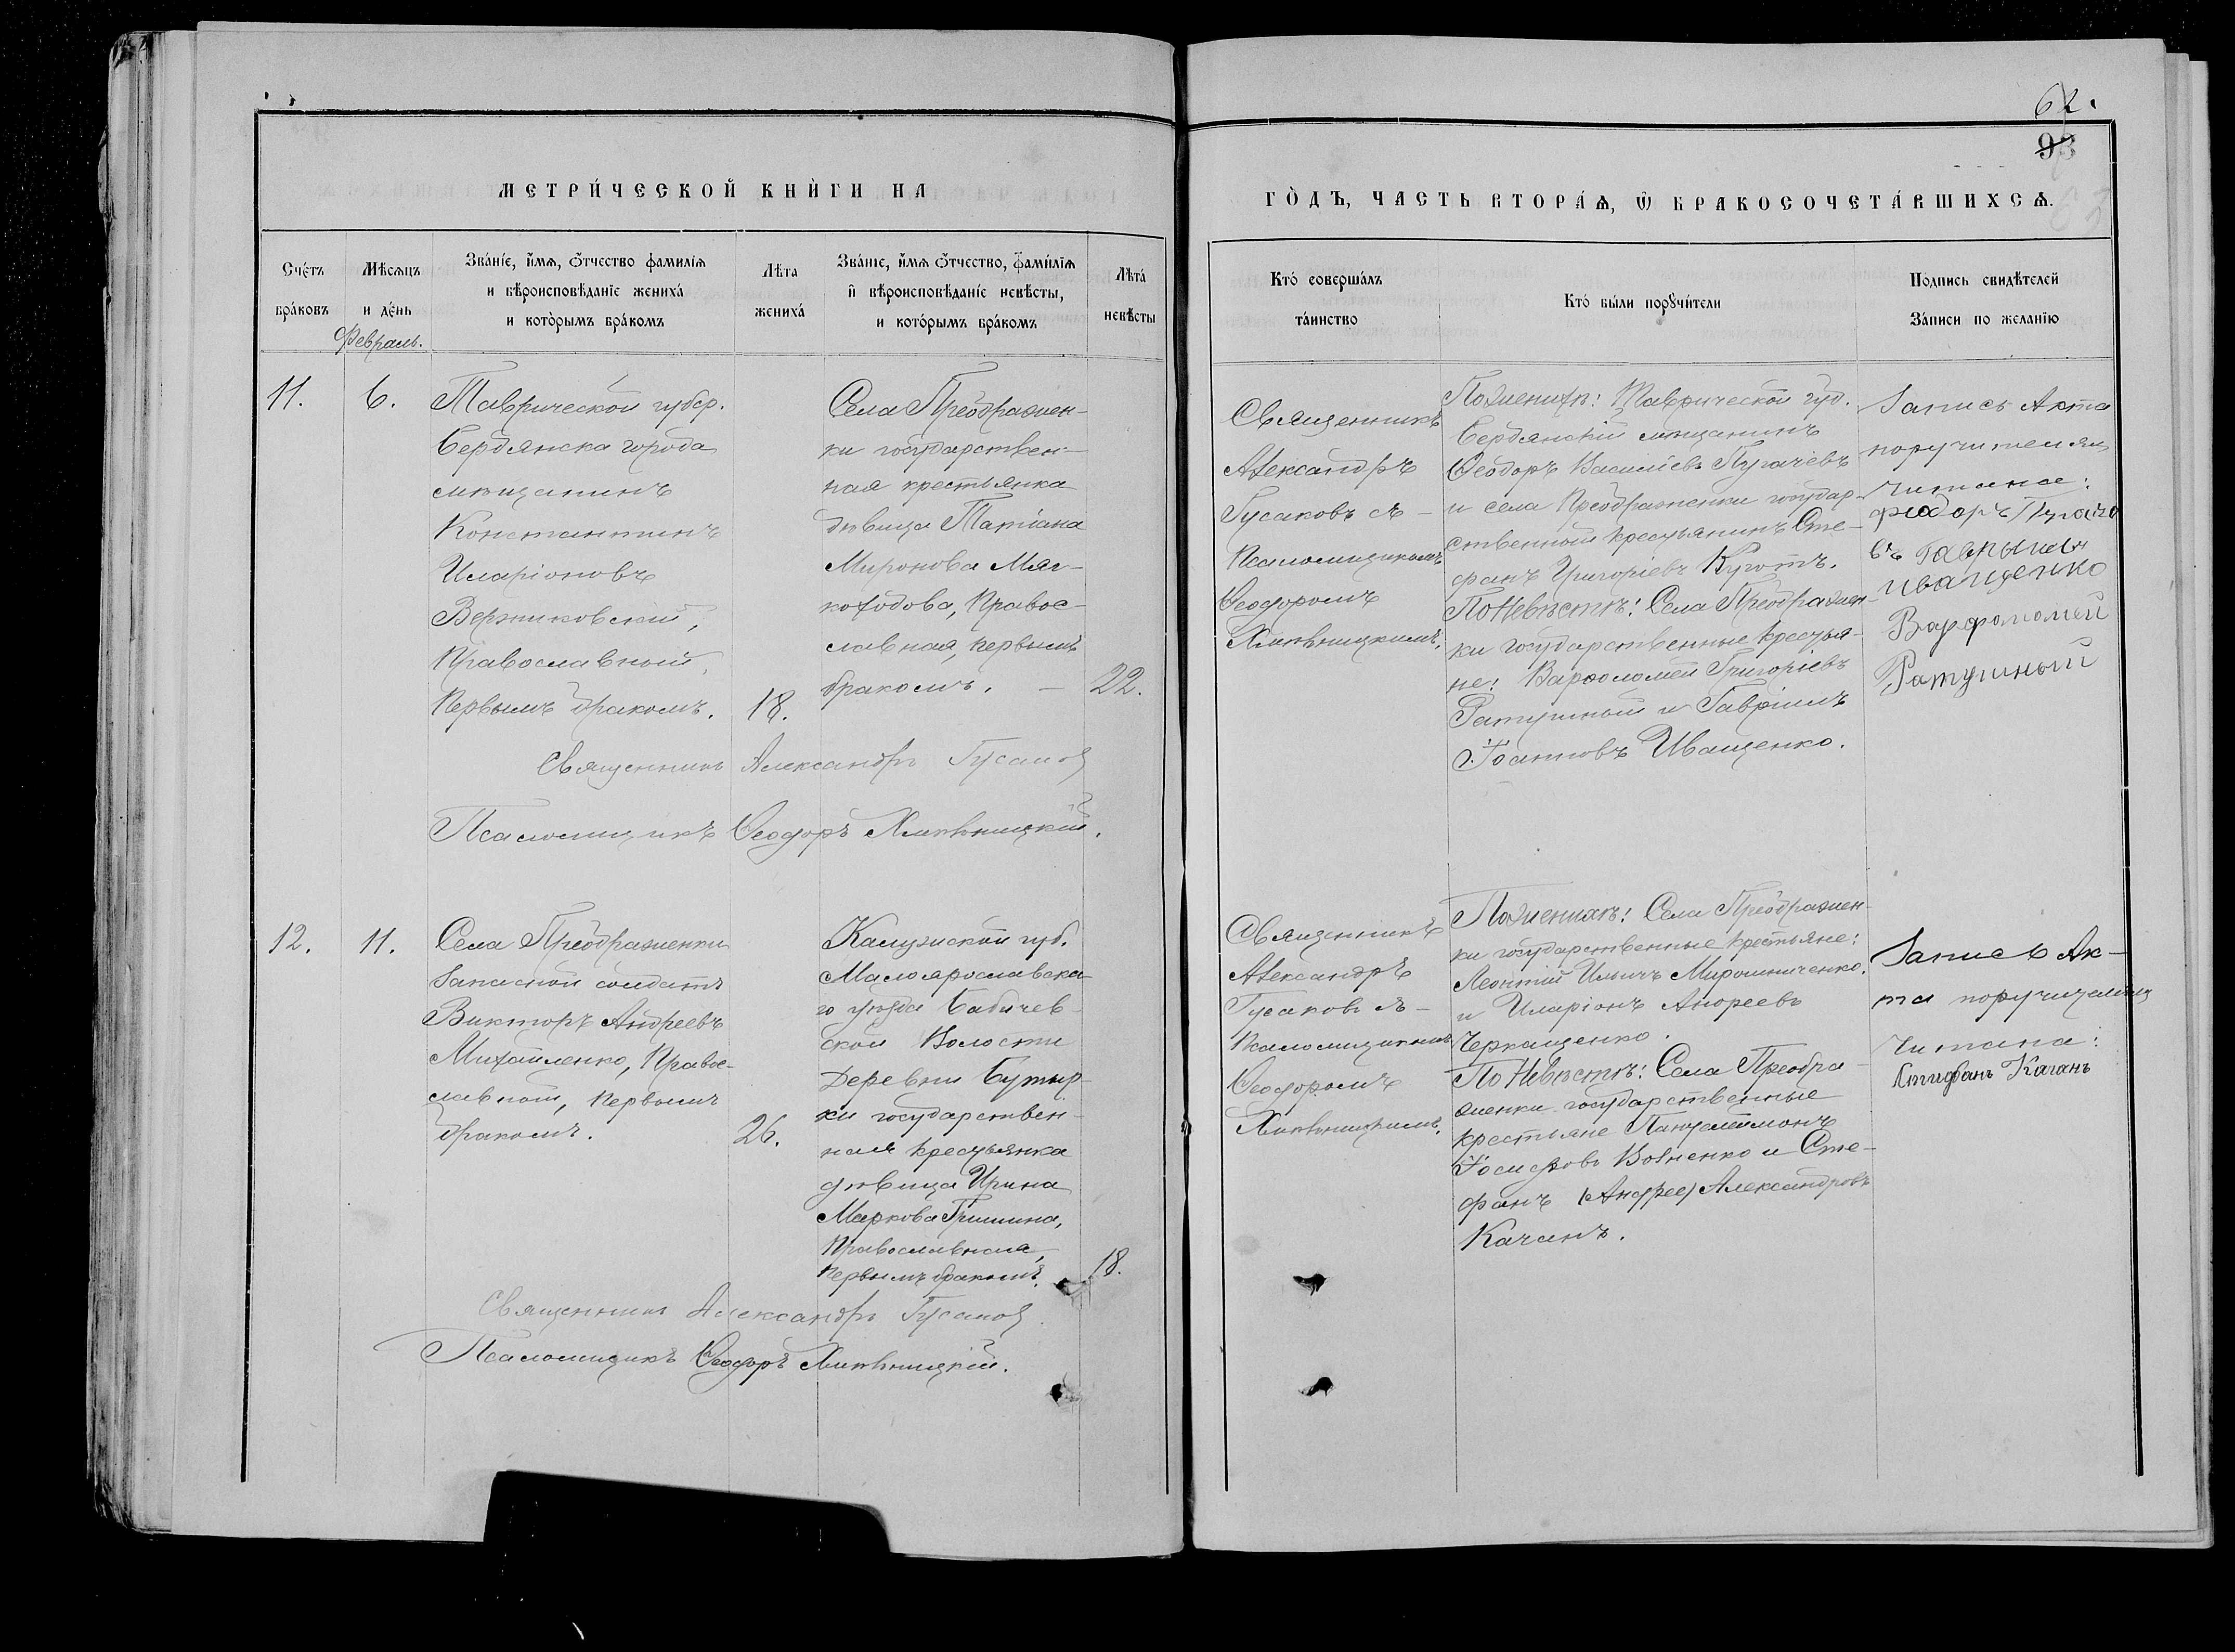 62.
93
МЕТРИ́ЧЕСКОЙ КНИ́ГИ НА
ГО́ДЪ, ЧАСТЬ ВТОРА́Ѧ, Ѡ҆ БРАКОСОЧЕТА́ВШИХСѦ.
Сче́тъ
бра́ковъ
Мѣ́сѧцъ
и де́нь
Февраль.
Зва́нїе, и҆́мѧ, ѻ҆́тчество фамилїѧ
и вѣроисповѣ́данїе жениха́
и кото́рымъ бра́комъ
Лѣ́та
жениха́
Зва́нїе, и҆́мѧ ѻ҆́тчество, фамилїѧ
и҆ вѣроисповѣ́данїе невѣ́сты,
и кото́рымъ бра́комъ
Лѣта́
невѣ́сты
Кто́ соверша́лъ
та́инство
Кто́ бы́ли порꙋчи́тели
Подпись свидѣ́телей
За́писи по жела́нїю
11.
6.
Таврической губер.
Бердянска города
мѣщанинъ
Константинъ
Иларіоновъ
Вержиковскій,
Православный,
Первымъ бракомъ.
18.
Села Преображен-
ки государствен-
ная крестьянка
дѣвица Татіана
Миронова Мяг-
коходова, Правос-
лавная, первымъ
бракомъ. —
22.
Священникъ
Александръ
Гусаковъ съ -
Псаломщикомъ
Ѳеодоромъ
Хмѣльницкимъ.
По женихѣ: Таврической губ.
Бердянскій мѣщанинъ
Ѳеодоръ Василіевъ Пугачевъ
и села Преображенки государ-
ственный крестьянинъ Сте-
фанъ Григоріевъ
По Невѣстѣ: Села Преображен-
ки государственные крестья-
не: Варѳоломей Григоріевъ
Ратушный и Гавріилъ
Іоанновъ Иващенко.
Запись Акта
поручителям
читана:
федоръ Пугаче
въ Гаврыилъ
иващенко
Варфоломей
Ратушный
Священникъ Александръ Гусаковъ
Псаломщикъ Ѳеодоръ Хмѣльницкій.
12.
11.
Села Преображенки
Запасной солдатъ
Викторъ Андреевъ
Михайленко, Правос-
лавный, Первымъ
бракомъ.
26.
Калужской губ.
Малоярославска-
го уѣзда Бабичев-
ской Волости
Деревни Бутыр-
ки государствен-
ная крестьянка
дѣвица Ирина
Маркова Гришина,
Православная,
первымъ бракомъ.
18.
Священникъ
Александръ
Гусаковъ съ -
Псаломщикомъ
Ѳеодоромъ
Хмѣльницкимъ.
По Женихѣ: Села Преображен-
ки государственные крестьяне:
Леонтій Ильичъ Мирошниченко.
и Иларіонъ Андреевъ
Черкащенко.
По Невѣстѣ: Села Преобра-
женки государственные
крестьяне Пантелеймонъ
Іосифовъ и Сте-
фанъ (Андрее) Александровъ
Качанъ.
Запись Ак-
та поручителямъ
Читана:
Стифанъ Качанъ
Священникъ Александръ Гусаковъ
Псаломщикъ Ѳеодоръ Хмѣльницкій.